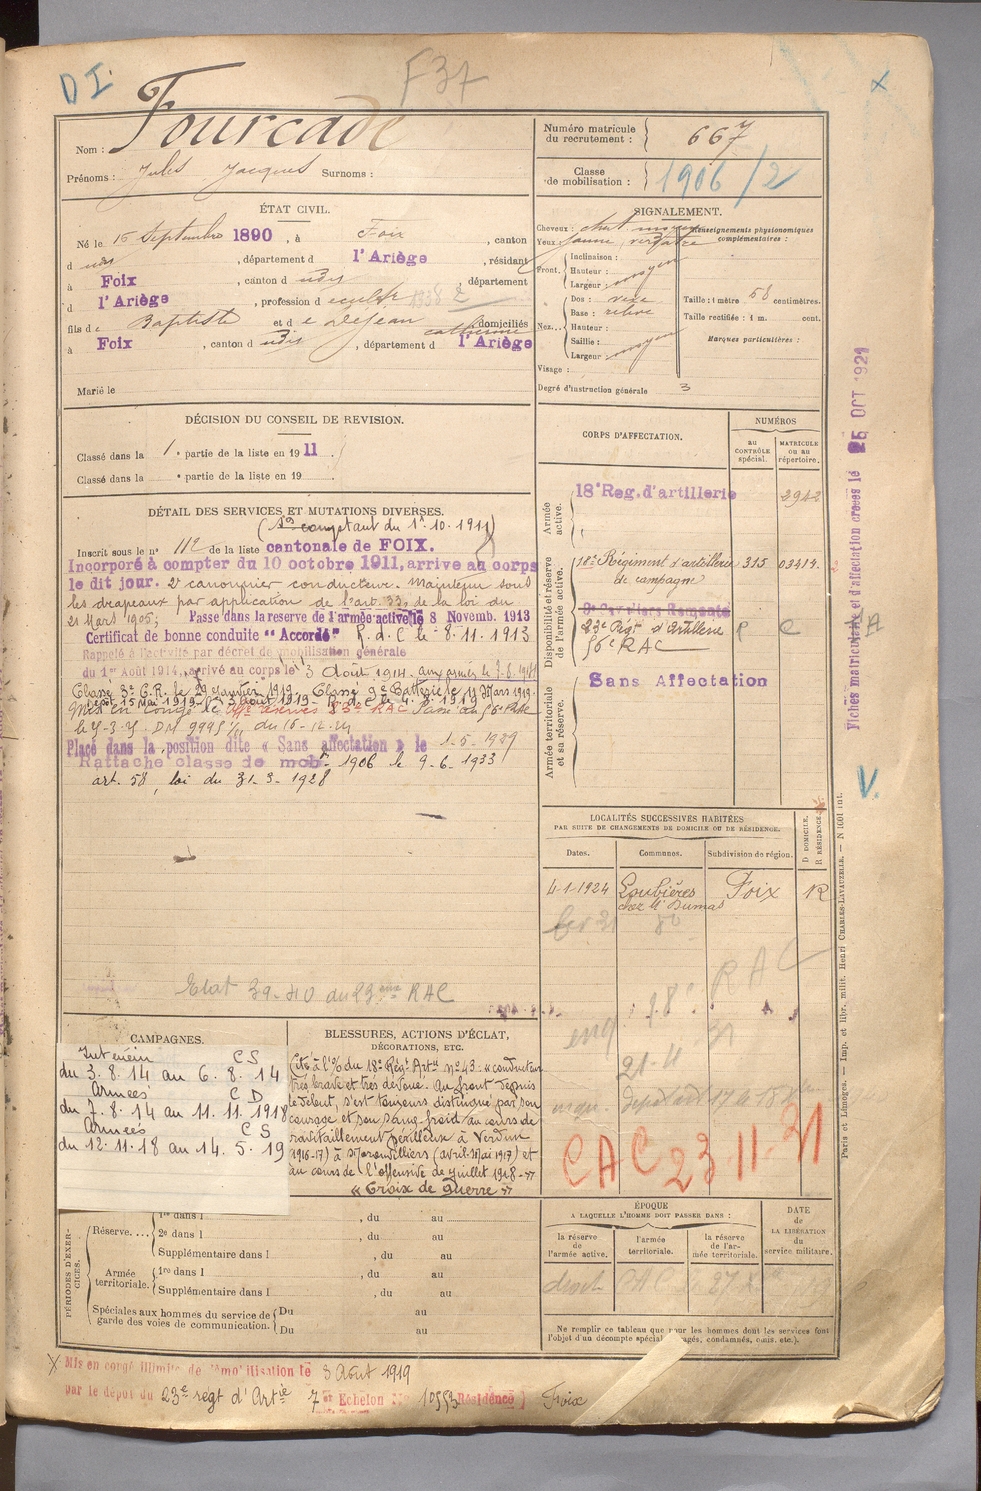 D I.
F37
x
Nom : Fourcade
Prénoms : Jules Jacques Surnoms :
Numéro matricule du recrutement : } 667
Classe de mobilisation : } 1906/2
ÉTAT CIVIL.
Né le 15 Septembre 1890, à Foix, canton
d udit, département d l'Ariège, résidant
à Foix, canton d udit, département
d l'Ariège, profession d
fils de Baptiste et d e Dejean Catherine domiciliés
à Foix, canton d udit, département d l'Ariège
Marié le
SIGNALEMENT.
Cheveux : chat. moyen
Yeux : jaune verdatre
Renseignements physionomiques complémentaires :
Front. { Inclinaison :
Hauteur : moyen
Largeur :
Nez... { Dos : vexe
Base : relevé
Hauteur :
Saillie : moyen
Largeur :
Visage :
Taille : 1 mètre 58 centimètres.
Taille rectifiée : 1 m. cent.
Marques particulières :
Degré d'instruction générale 3
DÉCISION DU CONSEIL DE REVISION.
Classé dans la 1e partie de la liste en 1911
Classé dans la e partie de la liste en 19
DÉTAIL DES SERVICES ET MUTATIONS DIVERSES.
(À comptant du 1er.10.1911)
Inscrit sous le n° 112 de la liste cantonale de FOIX.
Incorporé à compter du 10 octobre 1911, arrive au corps
le dit jour. 2e canonnier conducteur. Maintenu sous
les drapeaux par application de l'art. 33, de la loi du
21 Mars 1905; Passe dans la reserve de l'armée active le 8 Novemb. 1913
Certificat de bonne conduite "Accordé" R. d. C le 8.11.1913
Rappelé à l'activité par décret de mobilisation générale
du 1er Août 1914, arrivé au corps le 3 Août 1914. aux armées le 7.8.1914
Classé 3e C.R. le 29 Janvier 1919. Classé 9e Batterie le 11 Mars 1919.
Dépôt 15 Mai 1919 - 3 Aout 1919 - R. d. C le 4.8.1919
Mis en congé le Affe réserves 23e RAC Passe au 56e RAC
Placé dans la position dite « Sans affectation » le 1-5-1929
Rattaché classe de mob. 1906 le 9-6-1933
art. 58, loi du 31-3-1928
Etat 39-40 du 23ème RAC
CORPS D'AFFECTATION.
NUMÉROS
AU CONTRÔLE SPÉCIAL.
MATRICULE OU AU RÉPERTOIRE.
Armée active.
18e Reg. d'artillerie 2942
Disponibilité et réserve de l'armée active.
18e Régiment d'artillerie 315 03414.
de campagne
9e Cavaliers Remonte
23e Régt d'Artillerie R C
56e RAC
Armée territoriale et sa réserve.
Sans Affectation
LOCALITÉS SUCCESSIVES HABITÉES
PAR SUITE DE CHANGEMENTS DE DOMICILE OU DE RÉSIDENCE.
Dates. Communes. Subdivision de région. D DOMICILE, R RÉSIDENCE.
4-1-1924 Loubières Foix R
chez Mr Dumas
RAC
18e
21-11 31
CAC 23.11.31
CAMPAGNES.
Intérieur CS
du 3.8.14 au 6.8.14
Armées CD
du 7.8.14 au 11.11.1918
Armées CS
du 12.11.18 au 14.5.19
BLESSURES, ACTIONS D'ÉCLAT,
DÉCORATIONS, ETC.
Cité à l'O/ du 18e Régt Artie n° 43: « conducteur
très brave et très dévoué. Au front depuis
le début, s'est toujours distingué par son
courage et son sang froid au cours de
ravitaillement périlleux à Verdun
1916-17) à Moronvilliers (avril-Mai 1917) et
au cours de l'offensive de Juillet 1918 -»
« Croix de Guerre »
PÉRIODES D'EXERCICES.
Réserve.... { 1re dans l , du au
2e dans l , du au
Supplémentaire dans l , du au
Armée territoriale. { 1re dans l , du au
Supplémentaire dans l , du au
Spéciales aux hommes du service de garde des voies de communication. { Du au
Du au
ÉPOQUE
A LAQUELLE L'HOMME DOIT PASSER DANS :
la réserve de l'armée active.
l'armée territoriale.
la réserve de l'armée territoriale.
DATE de LA LIBÉRATION du service militaire.
Ne remplir ce tableau que pour les hommes dont les services font
l'objet d'un décompte spécial engagés, condamnés, omis, etc.).
X Mis en congé illimité de démobilisation le 3 Aout 1919
par le dépôt du 23e régt d'Artie 7e Echelon N° 10553 Résidence } Foix
Fiches matricule et d'affectation créées le 25 OCT 1921
V.
Paris et Limoges. — Imp. et libr. milit. Henri CHARLES-LAVAUZELLE. — N 1601 int.